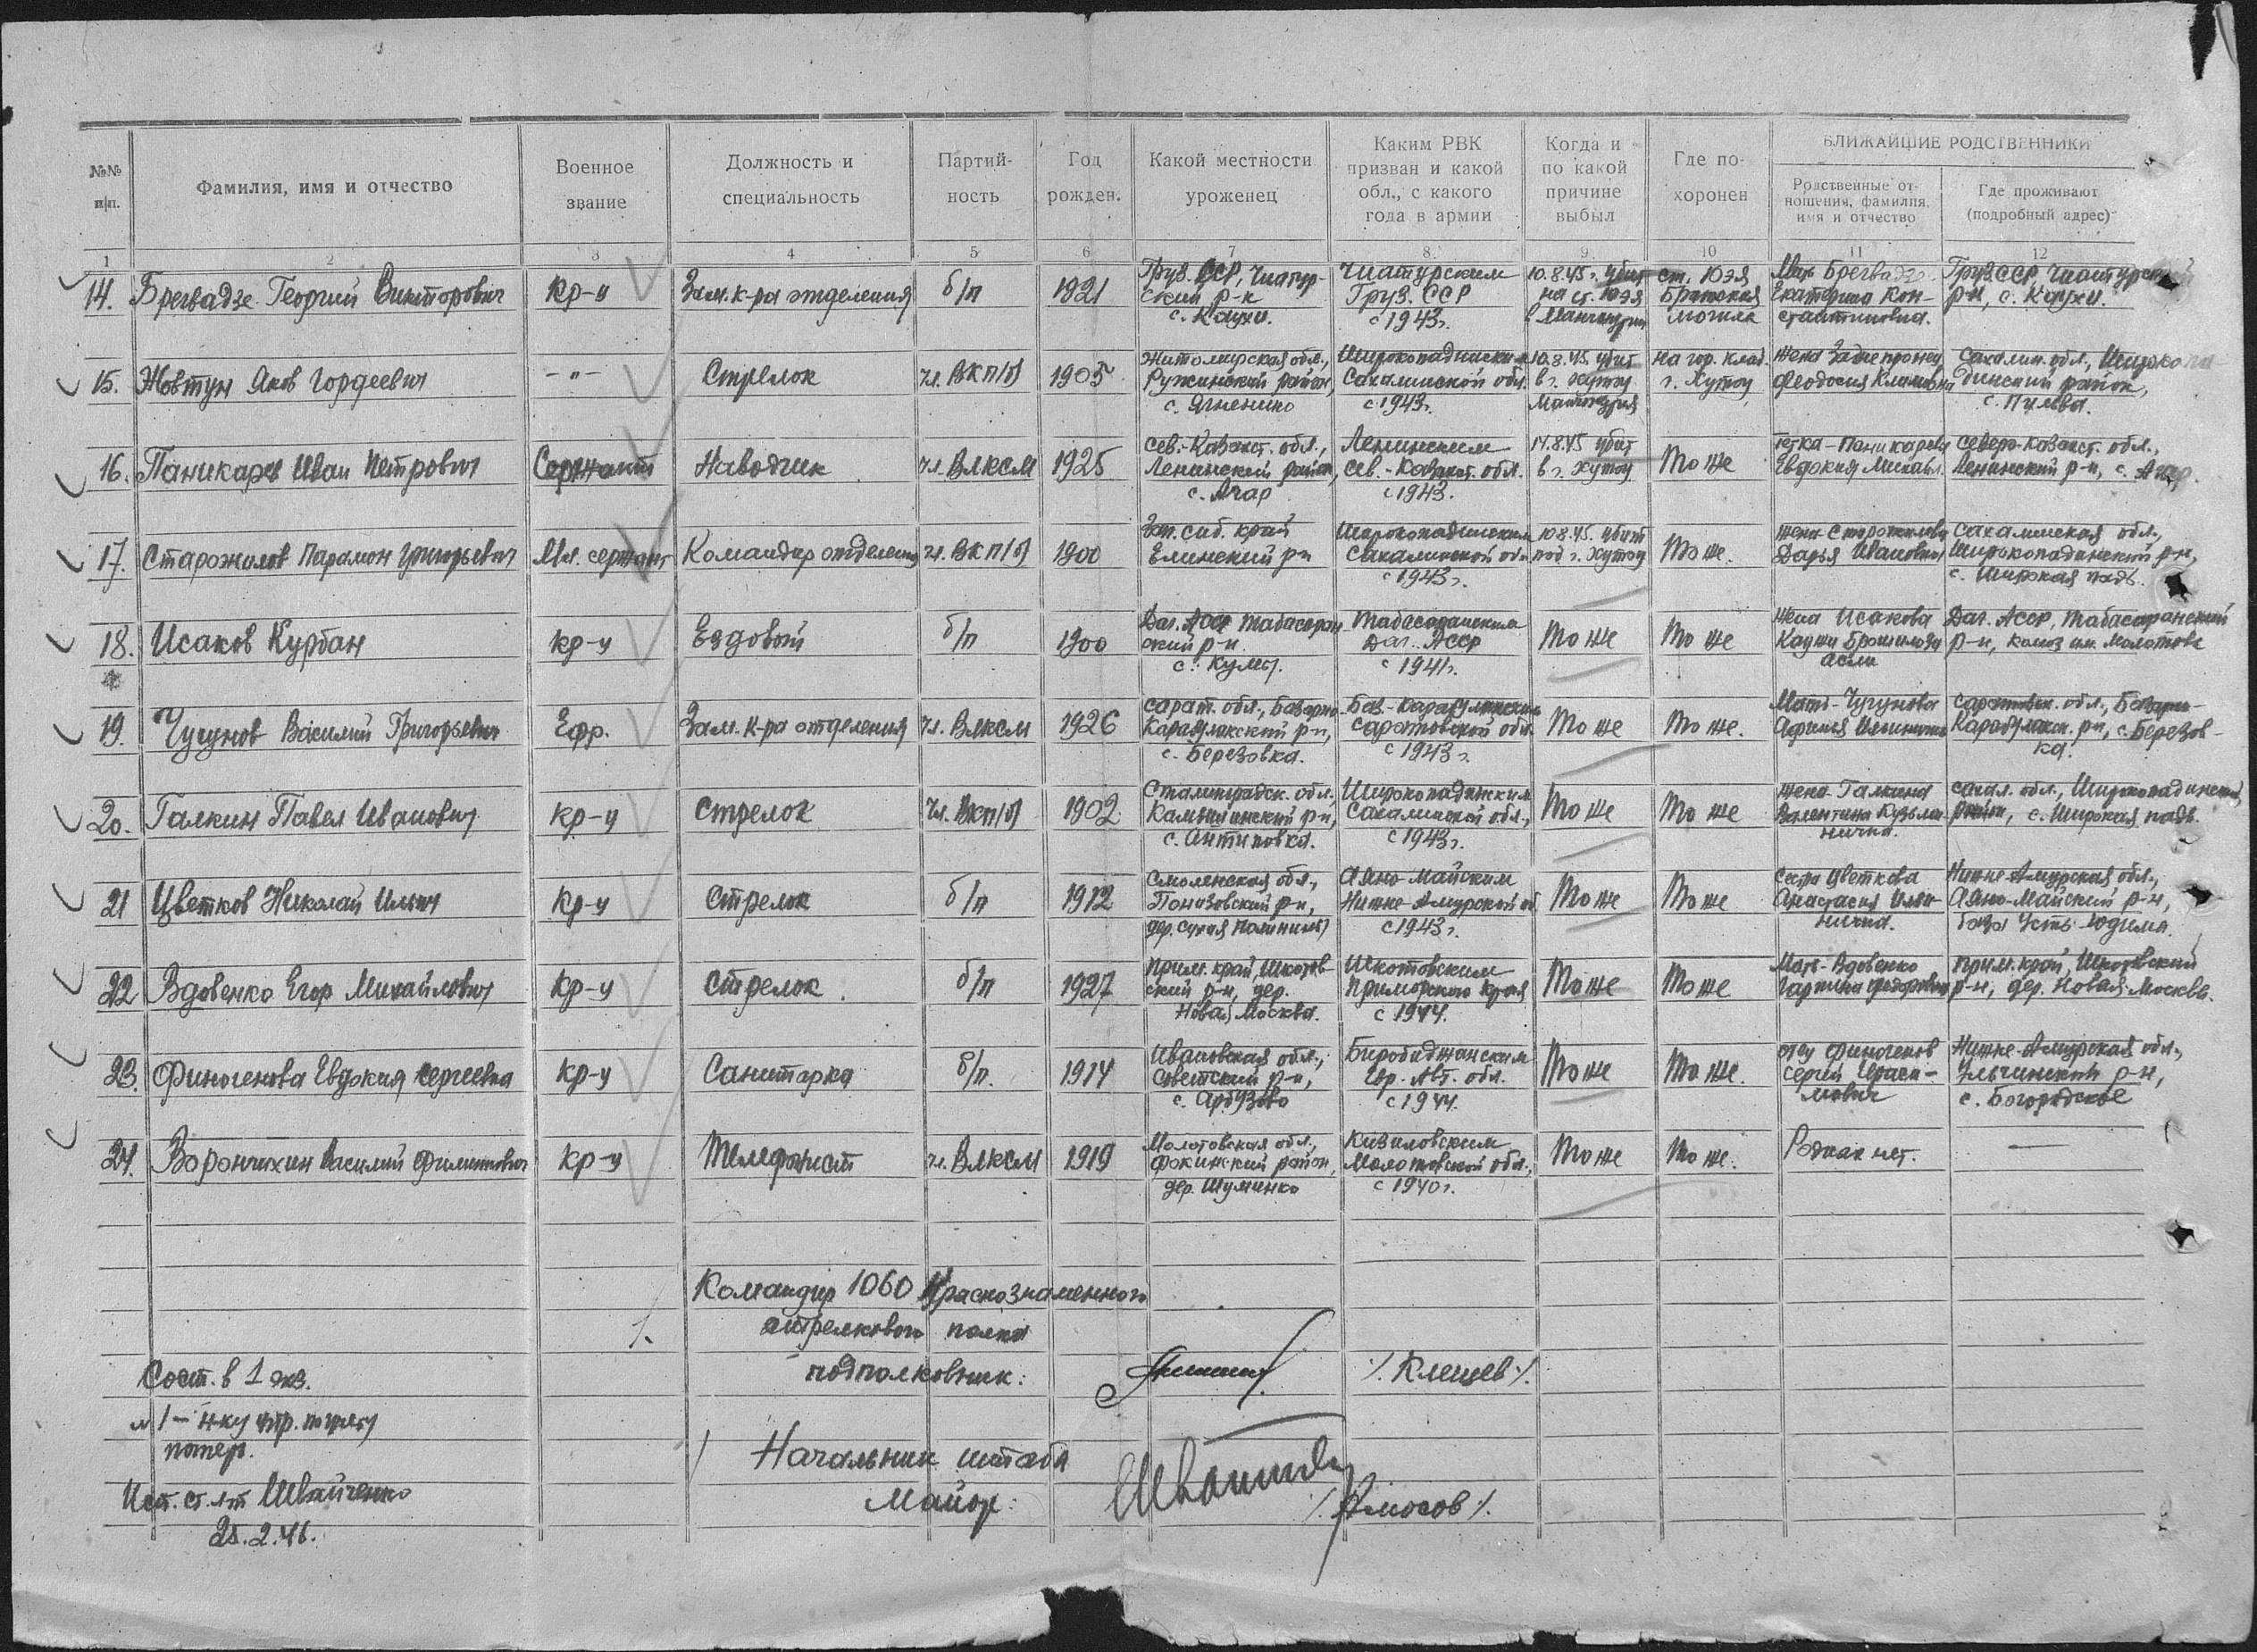 №№ п/п.
Фамилия, имя и отчество
Военное звание
Должность и специальность
Партий-ность
Год рожден.
Какой местности уроженец
Каким РВК призван и какой обл., с какого года в армии
Когда и по какой причине выбыл
Где по-хоронен
БЛИЖАЙШИЕ РОДСТВЕННИКИ
Родственные от-ношения, фамилия, имя и отчество
Где проживают (подробный адрес)
1 2 3 4 5 6 7 8 9 10 11 12
14. Брегвадзе Георгий Викторович кр-ц Зам. к-ра отделения б/п 1921 Груз. ССР, Чиатур-ский р-н с. Чиатурским Груз. ССР с 1943г. 10.8.45г. убит на ст. Юэя в Манчжурии ст. Юэя Братская могила Мать Брегвадзе Екатерина Кон-стантиновна. Груз ССР, р-н, с.
15. Жовтун Яков Гордеевич -"- Стрелок чл. ВКП/б/ 1905 Житомирская обл., Ружинский район, с. Ягненико Широкопадинским Сахалинской обл. с 1943г. 10.8.45 убит в г. Хутоу Манчжурия на гор. клад. г. Хутоу жена Феодосия Климовна Сахалин. обл., динский район, с. Пильво.
16. Паникарев Иван Петрович Сержант Наводчик чл. ВЛКСМ 1925 Сев.-Казахст. обл., Ленинский район, с. Агар Ленинским Сев.-Казахст. обл. с 1943. 14.8.45 убит в г. Хутоу То же тетка - Паникарева Евдокия Михайл. Северо-Казахст. обл., Ленинский р-н, с.
17. Старожилов Парамон Григорьевич Мл. сержант Командир отделения чл. ВКП/б/ 1900 Зап. сиб. край р-н Широкопадинским Сахалинской обл. с 1943г. 10.8.45. убит под г. Хутоу То же. жена Старожилова Дарья Ивановна Сахалинская обл., Широкопадинский р-н, с. Широкая падь.
18. Исаков Курбан кр-ц Ездовой б/п 1900 Даг. АССР Табасаран ский р-н. с. Табасаранским Даг. АССР с 1941г. То же То же жена Исакова Даг. АССР, Табасаранский р-н, колхоз им. Молотова
19. Чугунов Василий Григорьевич Ефр. Зам. к-ра отделения чл. ВЛКСМ 1926 Сарат. обл., Базарно-Карабулакский р-н, с. Березовка. Баз-Карабулакским Саратовской обл. с 1943г. То же То же. Мать - Чугунова Саратовск. обл., Базарн-Карабулакск. р-н, с. Березов-ка.
20. Галкин Павел Иванович кр-ц стрелок чл. ВКП/б/ 1902 Сталинградск. обл., Камышинский р-н, с. Антиповка. Широкопадинским Сахалинской обл., с 1943г. То же То же жена Галкина Валентина Кузьми-нична. Сахал. обл., Широкопадинский район, с. Широкая падь.
21 Цветков Николай Ильич кр-ц стрелок б/п 1912 Смоленская обл., Понизовский р-н, дер. Сухая Аяно-Майским Нижне-Амурской об с 1943г. То же То же сестра Цветкова Анастасия Ильи-нична. Нижне-Амурская обл., Аяно-Майский р-н, база Усть-Юдома.
22 Вдовенко Егор Михайлович кр-ц стрелок б/п 1927 Прим. край, Шкотов-ский р-н, дер. Новая Москва. Шкотовским Приморского края с 1944. То же То же Мать - Вдовенко Прим. край, Шкотовский р-н, дер. Новая-Москва.
23. Финогенова Евдокия Сергеевна кр-ц Санитарка б/п. 1914 Ивановская обл., Советский р-н, с. Арбузово Биробиджанским Евр. Авт. обл. с 1944. То же То же. отец Финогенов Сергей Нижне-Амурская обл., Ульчинский р-н, с. Богородское
24. Ворончихин Василий Филиппович кр-ц Телефонист чл. ВЛКСМ 1919 Молотовская обл., Фокинский район, дер. Кизиловским Молотовской обл., с 1940г. То же То же. Родных нет. —
Командир 1060 Краснознаменного
стрелкового полка
подполковник: /. Клещев /.
Сост. в 1 экз.
№ 1 - н-ку упр. по учету
потерь.
Исп. ст. л-т Швайченко
25.2.46.
Начальник штаба
Майор: /. Амосов /.